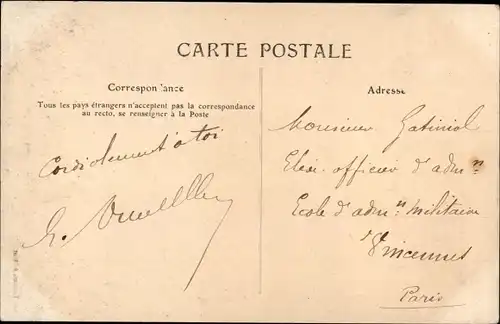 CARTE POSTALE
Correspondance
Tous les pays étrangers n'acceptent pas la correspondance
au recto, se renseigner à la Poste
Adresse
Cordialement à toi
Monsieur Gatiniol
Elève officier d'admn
Ecole d'admn militaire
Vincennes
Paris